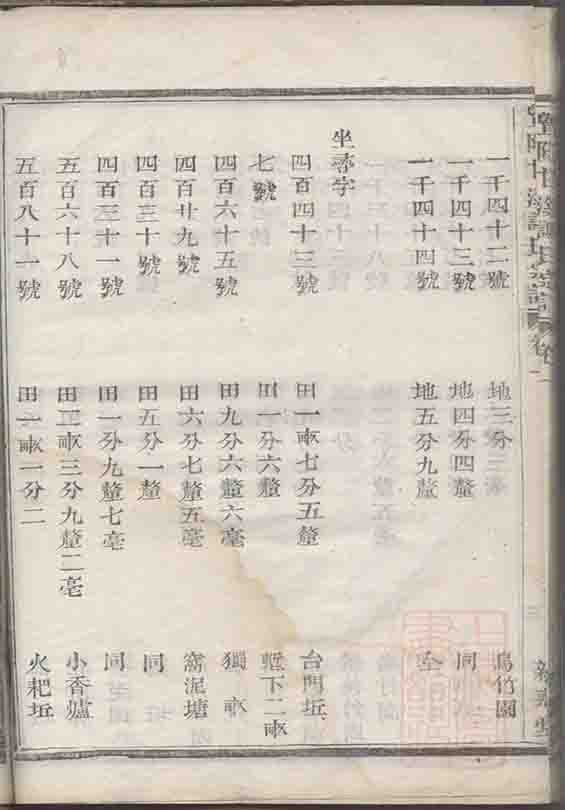 一千四十二號 地三分三釐 烏竹園
一千四十三號 地四分四釐 同
一千四十四號 地五分九釐 仝
坐壽字
四百四十三號 田一畝七分五釐 台門坵
七號 田一分六釐 下二畝
四百六十五號 田九分六釐六毫 獨畝
四百廿九號 田六分七釐五毫 窩泥塘
四百三十號 田五分一釐 同
四百三十一號 田一分九釐七毫 同
五百六十八號 田正畝三分九釐二毫 小香爐
五百八十一號 田一畝一分二 火耙坵